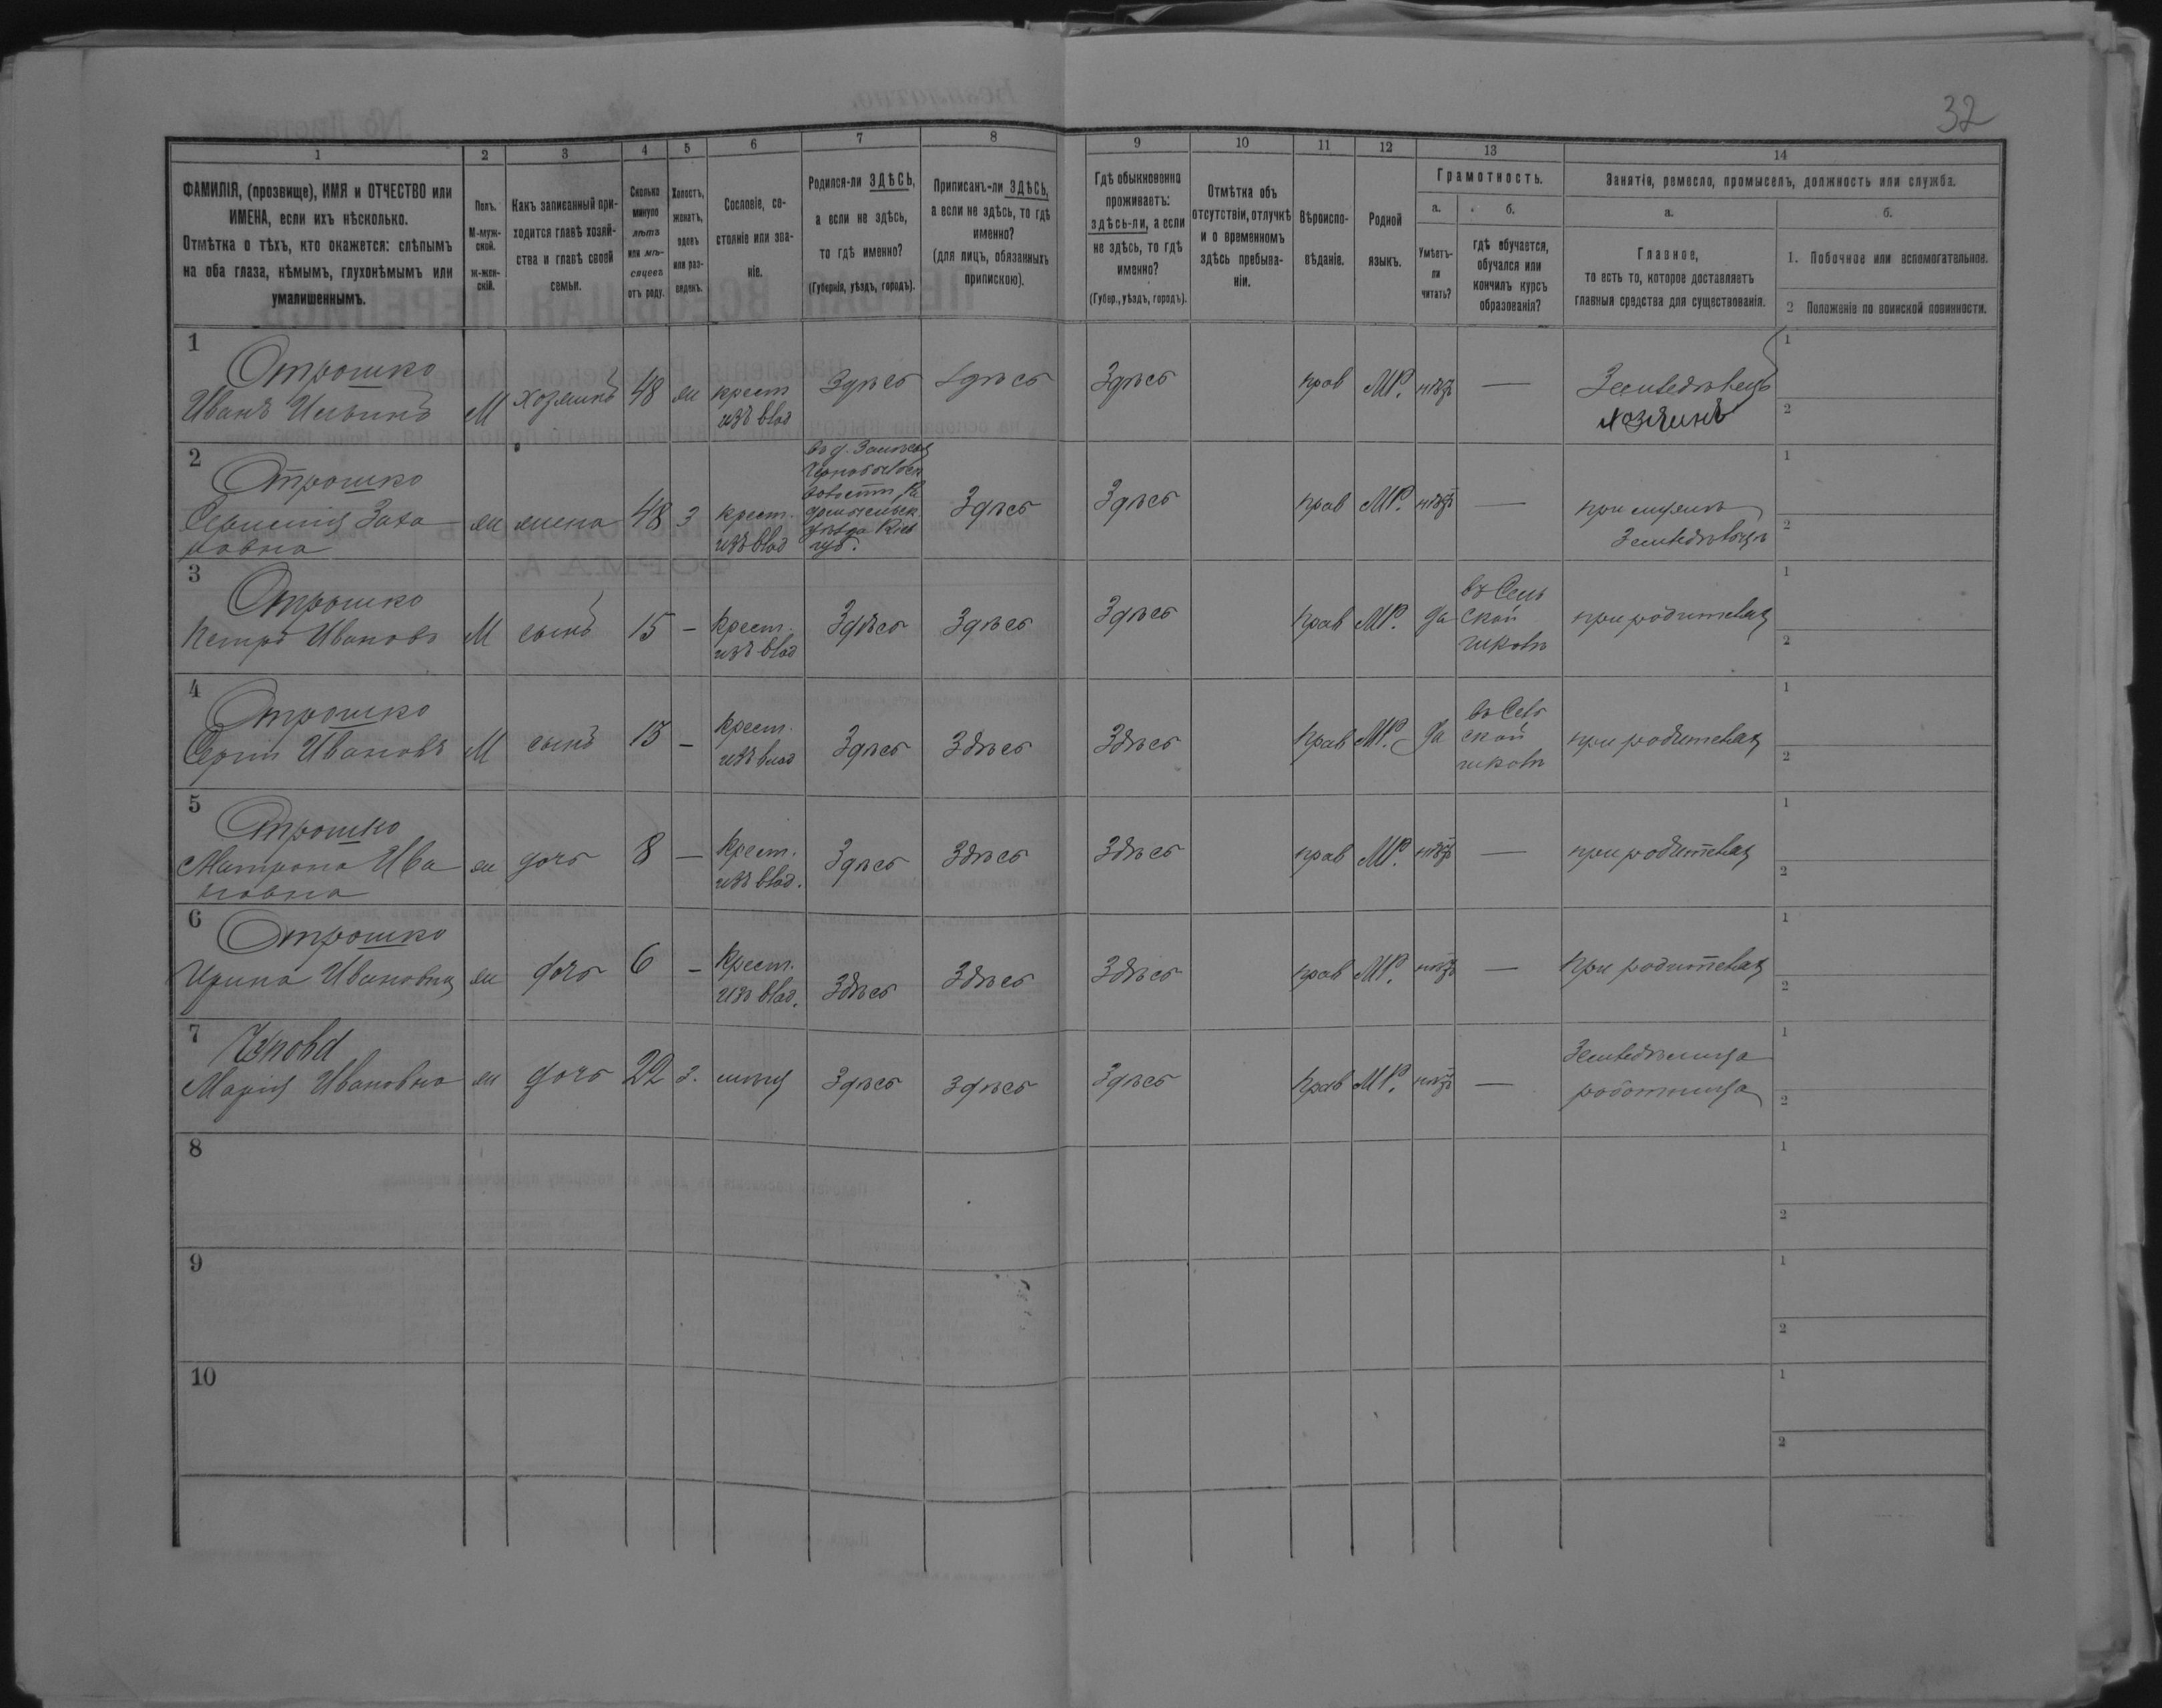 32
1 2 3 4 5 6 7 8 9 10 11 12 13 14
ФАМИЛІЯ, (прозвище), ИМЯ и ОТЧЕСТВО или ИМЕНА, если ихъ нѣсколько.
Отмѣтка о тѣхъ, кто окажется: слѣпымъ на оба глаза, нѣмымъ, глухонѣмымъ или умалишеннымъ.
Полъ. М-мужской. ж-женскій.
Какъ записанный приходится главѣ хозяйства и главѣ своей семьи.
Сколько минуло лѣтъ или мѣсяцевъ отъ роду.
Холостъ, женатъ, вдовъ или разведенъ.
Сословіе, состояніе или званіе.
Родился-ли ЗДѢСЬ, а если не здѣсь, то гдѣ именно?
(Губернія, уѣздъ, городъ).
Приписанъ-ли ЗДѢСЬ, а если не здѣсь, то гдѣ именно?
(для лицъ, обязанныхъ припискою).
Гдѣ обыкновенно проживаетъ: здѣсь-ли, а если не здѣсь, то гдѣ именно?
(Губер., уѣздъ, городъ).
Отмѣтка объ отсутствіи, отлучкѣ и о временномъ здѣсь пребываніи.
Вѣроисповѣданіе.
Родной языкъ.
Грамотность.
а. Умѣетъ-ли читать?
б. гдѣ обучается, обучался или кончилъ курсъ образованія?
Занятія, ремесло, промыселъ, должность или служба.
а. Главное, то есть то, которое доставляетъ главныя средства для существованія.
б.
1. Побочное или вспомогательное.
2 Положеніе по воинской повинности.
1 Отрошко
Иванъ Ильинъ М хозяинъ 48 ж крест. изъ влад Здѣсь Здѣсь Здѣсь прав МР. нѣтъ — Земледѣлецъ хозяинъ 1 2
2 Отрошко
Заха
ровна ж жена 48 з крест. изъ влад
Чернобыльск. волости Ра
домысльск. уѣзда Кіев. губ. Здѣсь Здѣсь прав МР. нѣтъ — при мужѣ 1 2
3 Отрошко
Петръ Ивановъ М сынъ 15 — Крест. изъ влад Здѣсь Здѣсь Здѣсь прав МР. да въ Сель
ской
школѣ при родителяхъ 1 2
4 Отрошко
Сергій Ивановъ М сынъ 13 — Крест. изъ влад Здѣсь Здѣсь Здѣсь прав МР. да въ Сель
ской
школѣ при родителяхъ 1 2
5 Отрошко
Матрона Ива
новна ж дочь 8 — Крест. изъ влад. Здѣсь Здѣсь Здѣсь прав МР. нѣтъ — при родителяхъ 1 2
6 Отрошко
Ирина Ивановна ж дочь 6 — Крест. изъ влад. Здѣсь Здѣсь Здѣсь прав МР. нѣтъ — при родителяхъ 1 2
7
Марія Ивановна ж дочь 22 з. Здѣсь Здѣсь Здѣсь прав МР. нѣтъ —
работница 1 2
8 1 2
9 1 2
10 1 2